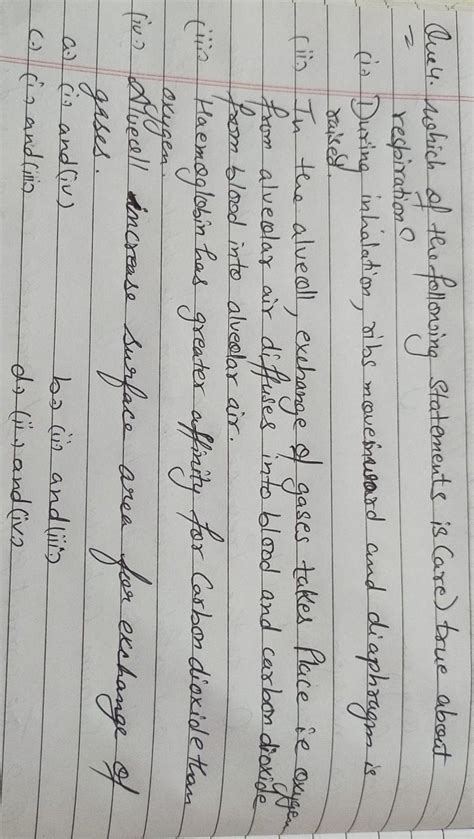 Que4. which of the following statements is (are) true about
respiration?
(i) During inhalation, ribs move inward and diaphragm is
raised
(ii) In the alveoli, exchange of gases takes Place ie oxygen
from alveolar air diffuses into blood and carbon dioxide
from blood into alveolar air.
(iii) Haemoglobin has greater affinity for Carbon dioxide than
oxygen.
(iv) Alveoli increase surface area for exchange of
gases.
a.) (i) and (iv) b.) (ii) and (iii)
c.) (i) and (iii) d.) (ii) and (iv)